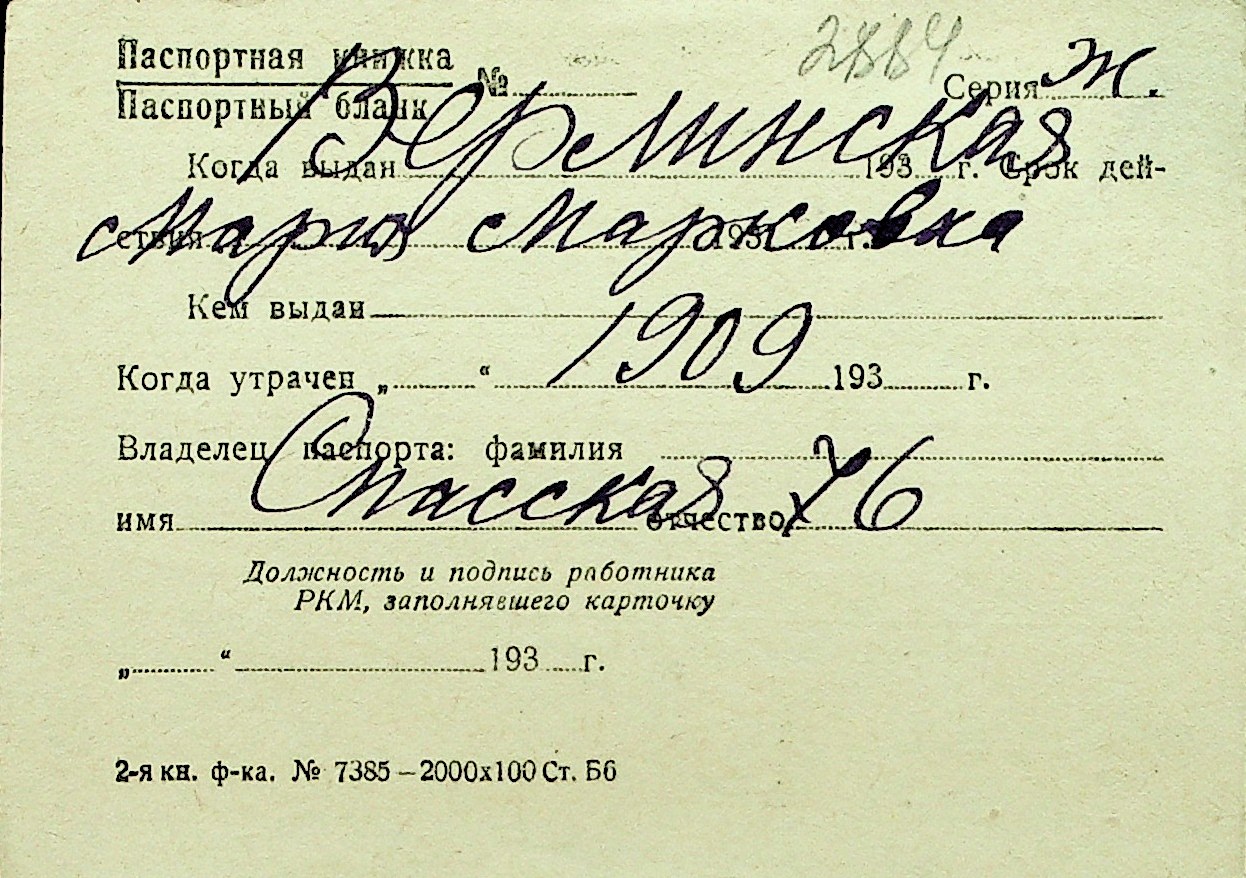 2884
Паспортная книжка
Паспортный бланк
№ Серия Ж.
Верлинская
Когда выдан 193 г. Срок дей-
Мария Марковна
ствия 193 г.
Кем выдан
1909
Когда утрачен „ “ 193 г.
Владелец паспорта: фамилия
Спасская 76
имя отчество
Должность и подпись работника
РКМ, заполнявшего карточку
„ “ 193 г.
2-я кн. ф-ка. № 7385 – 2000х100 Ст. Б6